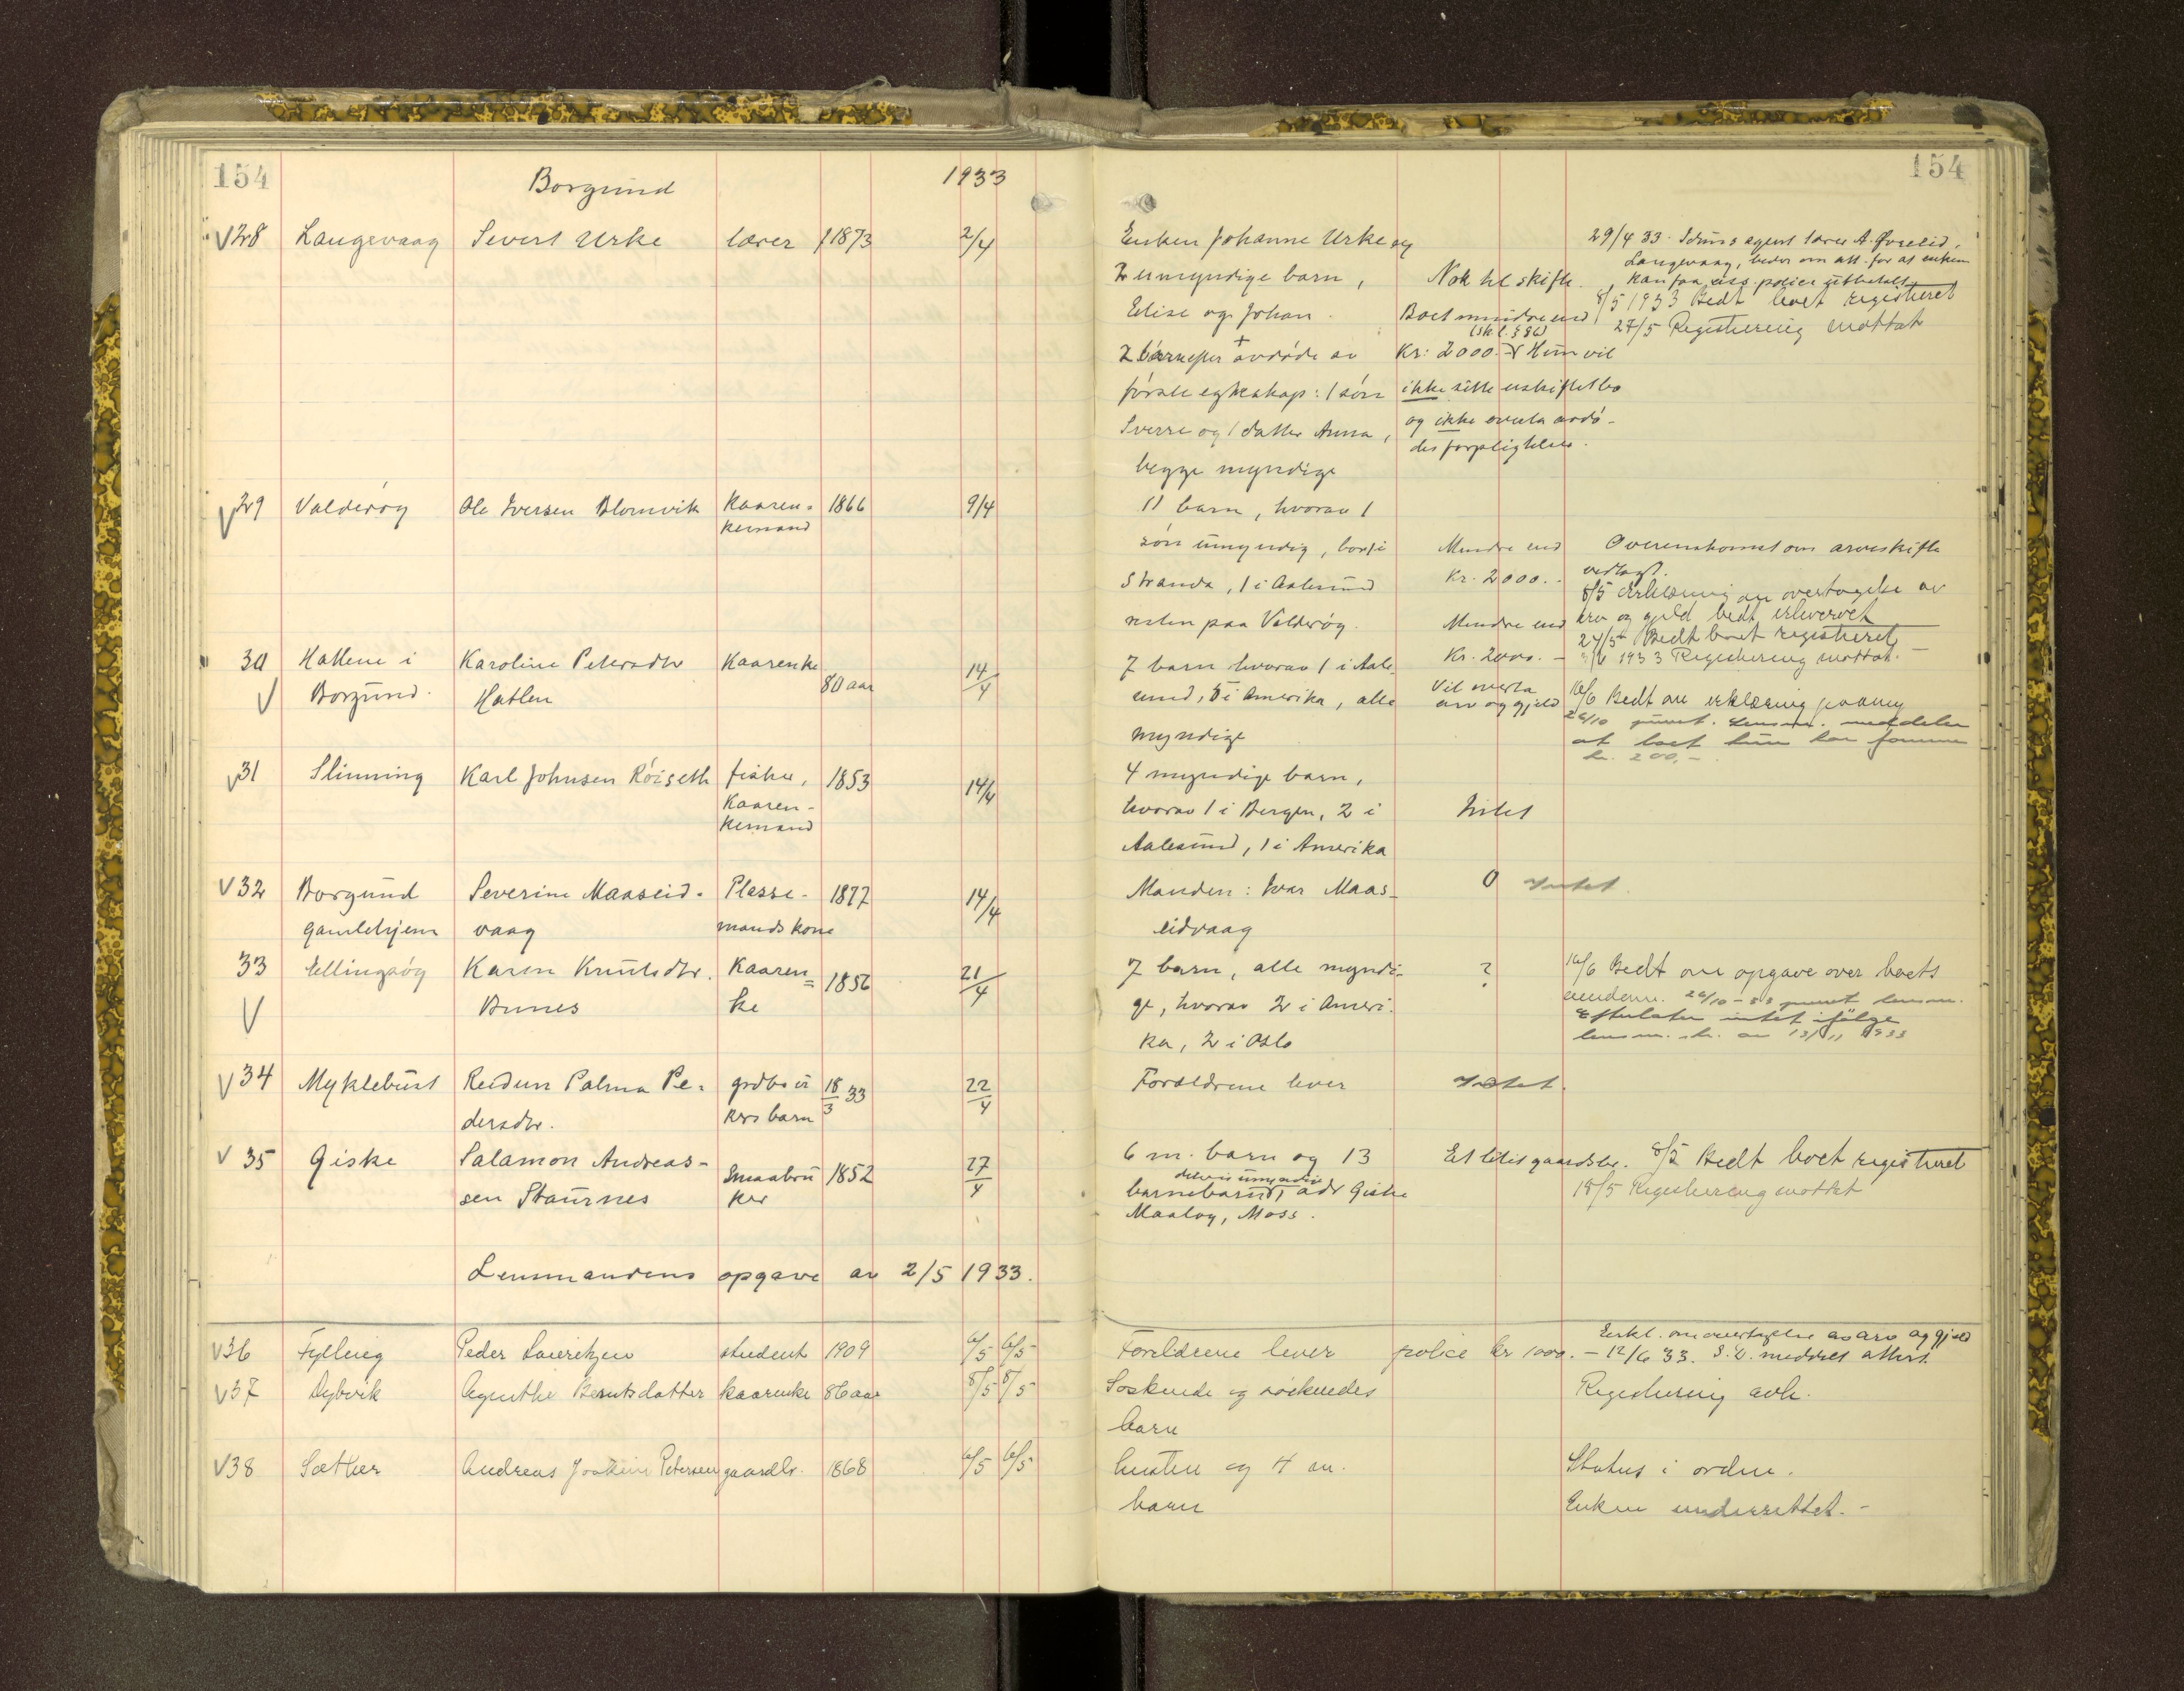 154 Borgund 1933 154
28 Langevaag Sivert Urke lærer f 1873 2/4 Enken Johanne Urke og 29/4 33. agent lærer A.
2 umyndige barn, Nok til skifte. Langevaag, beder om att. for at enken
kan faa police utbetalt.
Elise og Johan. Boet mindre end 8/5 1933 Bedt boet registreret
(sk. l. § 86) 27/5 Registrering mottat
2 barn efter avdøde av Kr: 2000.- Hun vil
første egteskap: 1 søn ikke sitte uskiftet bo
Sverre og 1 datter Anna, og ikke overta avdø-
des forpligtelser.
begge myndige
29 Valderøy Ole Iversen Blomvik Kaaren- 1866 9/4 11 barn, hvorav 1
kemand
søn umyndig, bor i Mindre end Overenskomst om arveskifte
Stranda, 1 i Aalesund Kr. 2000.- vedlagt.
8/5 Erklæring om overtagelse av
resten paa Valderøy. Mindre end arv og gjeld bedt erhvervet
27/5 Bedt boet registreret
30 Hatlene i Karoline Petersdtr Kaarenke 80 aar 14/4 7 barn hvorav 1 i Aale- Kr. 2000.- 1933 Registrering mottat.-
Borgund. Hatlen sund, 5 i Amerika, alle Vil overta 16/6 Bedt om erklæring paany
arv og gjeld 26/10 purret. Lensm. meddeler
myndige at boet kun har
kr. 200,-
31 Slinning Karl Johnsen Røiseth fisker, 1853 14/4 4 myndige barn,
Kaaren- hvorav 1 i Bergen, 2 i Intet
kemand
Aalesund, 1 i Amerika
32 Borgund Severine Maaseid- Plesse- 1877 14/4 Manden: Ivar Maas- 0 Intet.
gamlehjem vaag mands kone eidvaag
33 Ellingsøy Karen Knutsdtr. Kaaren- 1856 21/4 7 barn, alle myndi- ? 16/6 Bedt om opgave over boets
Bunes ke ge, hvorav 2 i Ameri- eiendom. 26/10-33 purret lensm.
Efterlater intet ifølge
ka, 2 i Oslo lensm. skr. av 13/11 1933
34 Myklebust Reidun Palma Pe- grdbru- 18/3 33 22/4 Foreldrene lever Intet.
dersdtr. kers barn
35 Giske Salamon Andreas- Smaabru 1852 27/4 6 m. barn og 13 Et litet gaardsbr. 8/5 Bedt boet registreret
delvis umyndige
sen Staurnes ker barnebarn, adr Giske 18/5 Registrering mottat
Maaløy, Moss.
Lensmandens opgave av 2/5 1933.
36 Fylling Peder Lauritzen student 1909 6/5 6/5 Foreldrene lever police kr 1000.- Erkl. om overtagelse av arv og gjeld
12/6 33. S. D. meddelt attest.
37 Dybvik Agnethe Berntsdatter kaarenke 86 aar 8/5 8/5 Søskende og søskendes Registrering avh.
barn
38 Sæther Andreas Joakim Petersen gaardbr. 1868 6/5 6/5 Enken og 4 m. Status i orden.
barn Enken underrettet.-